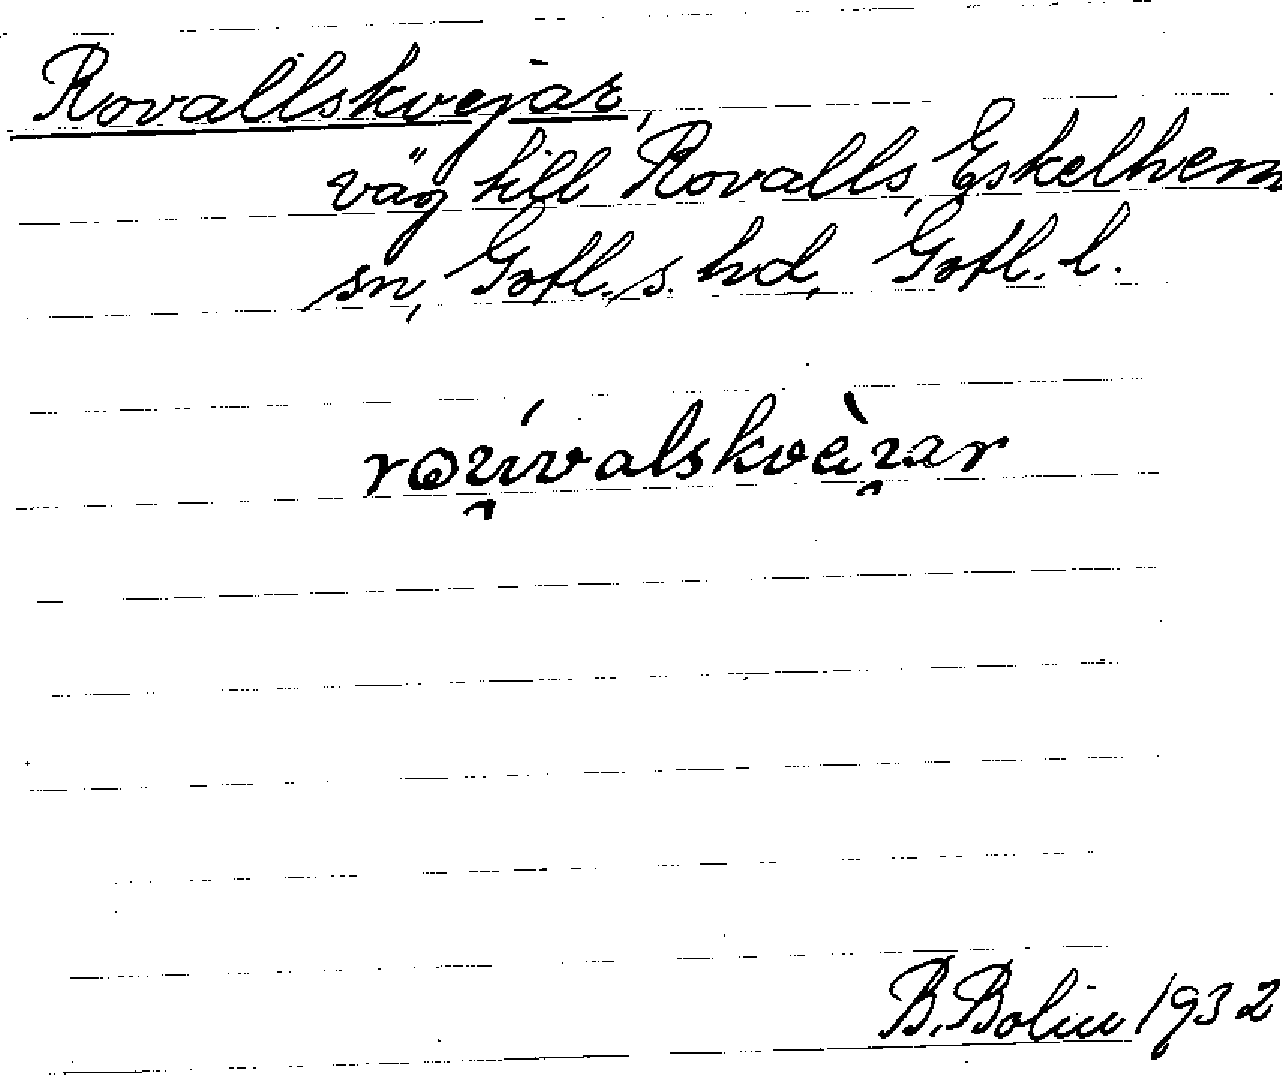 Rovallskvejar,
väg till Rovalls, Eskelhem
sn, Gotl. s. hd, Gotl. l.
B. Bolin 1932